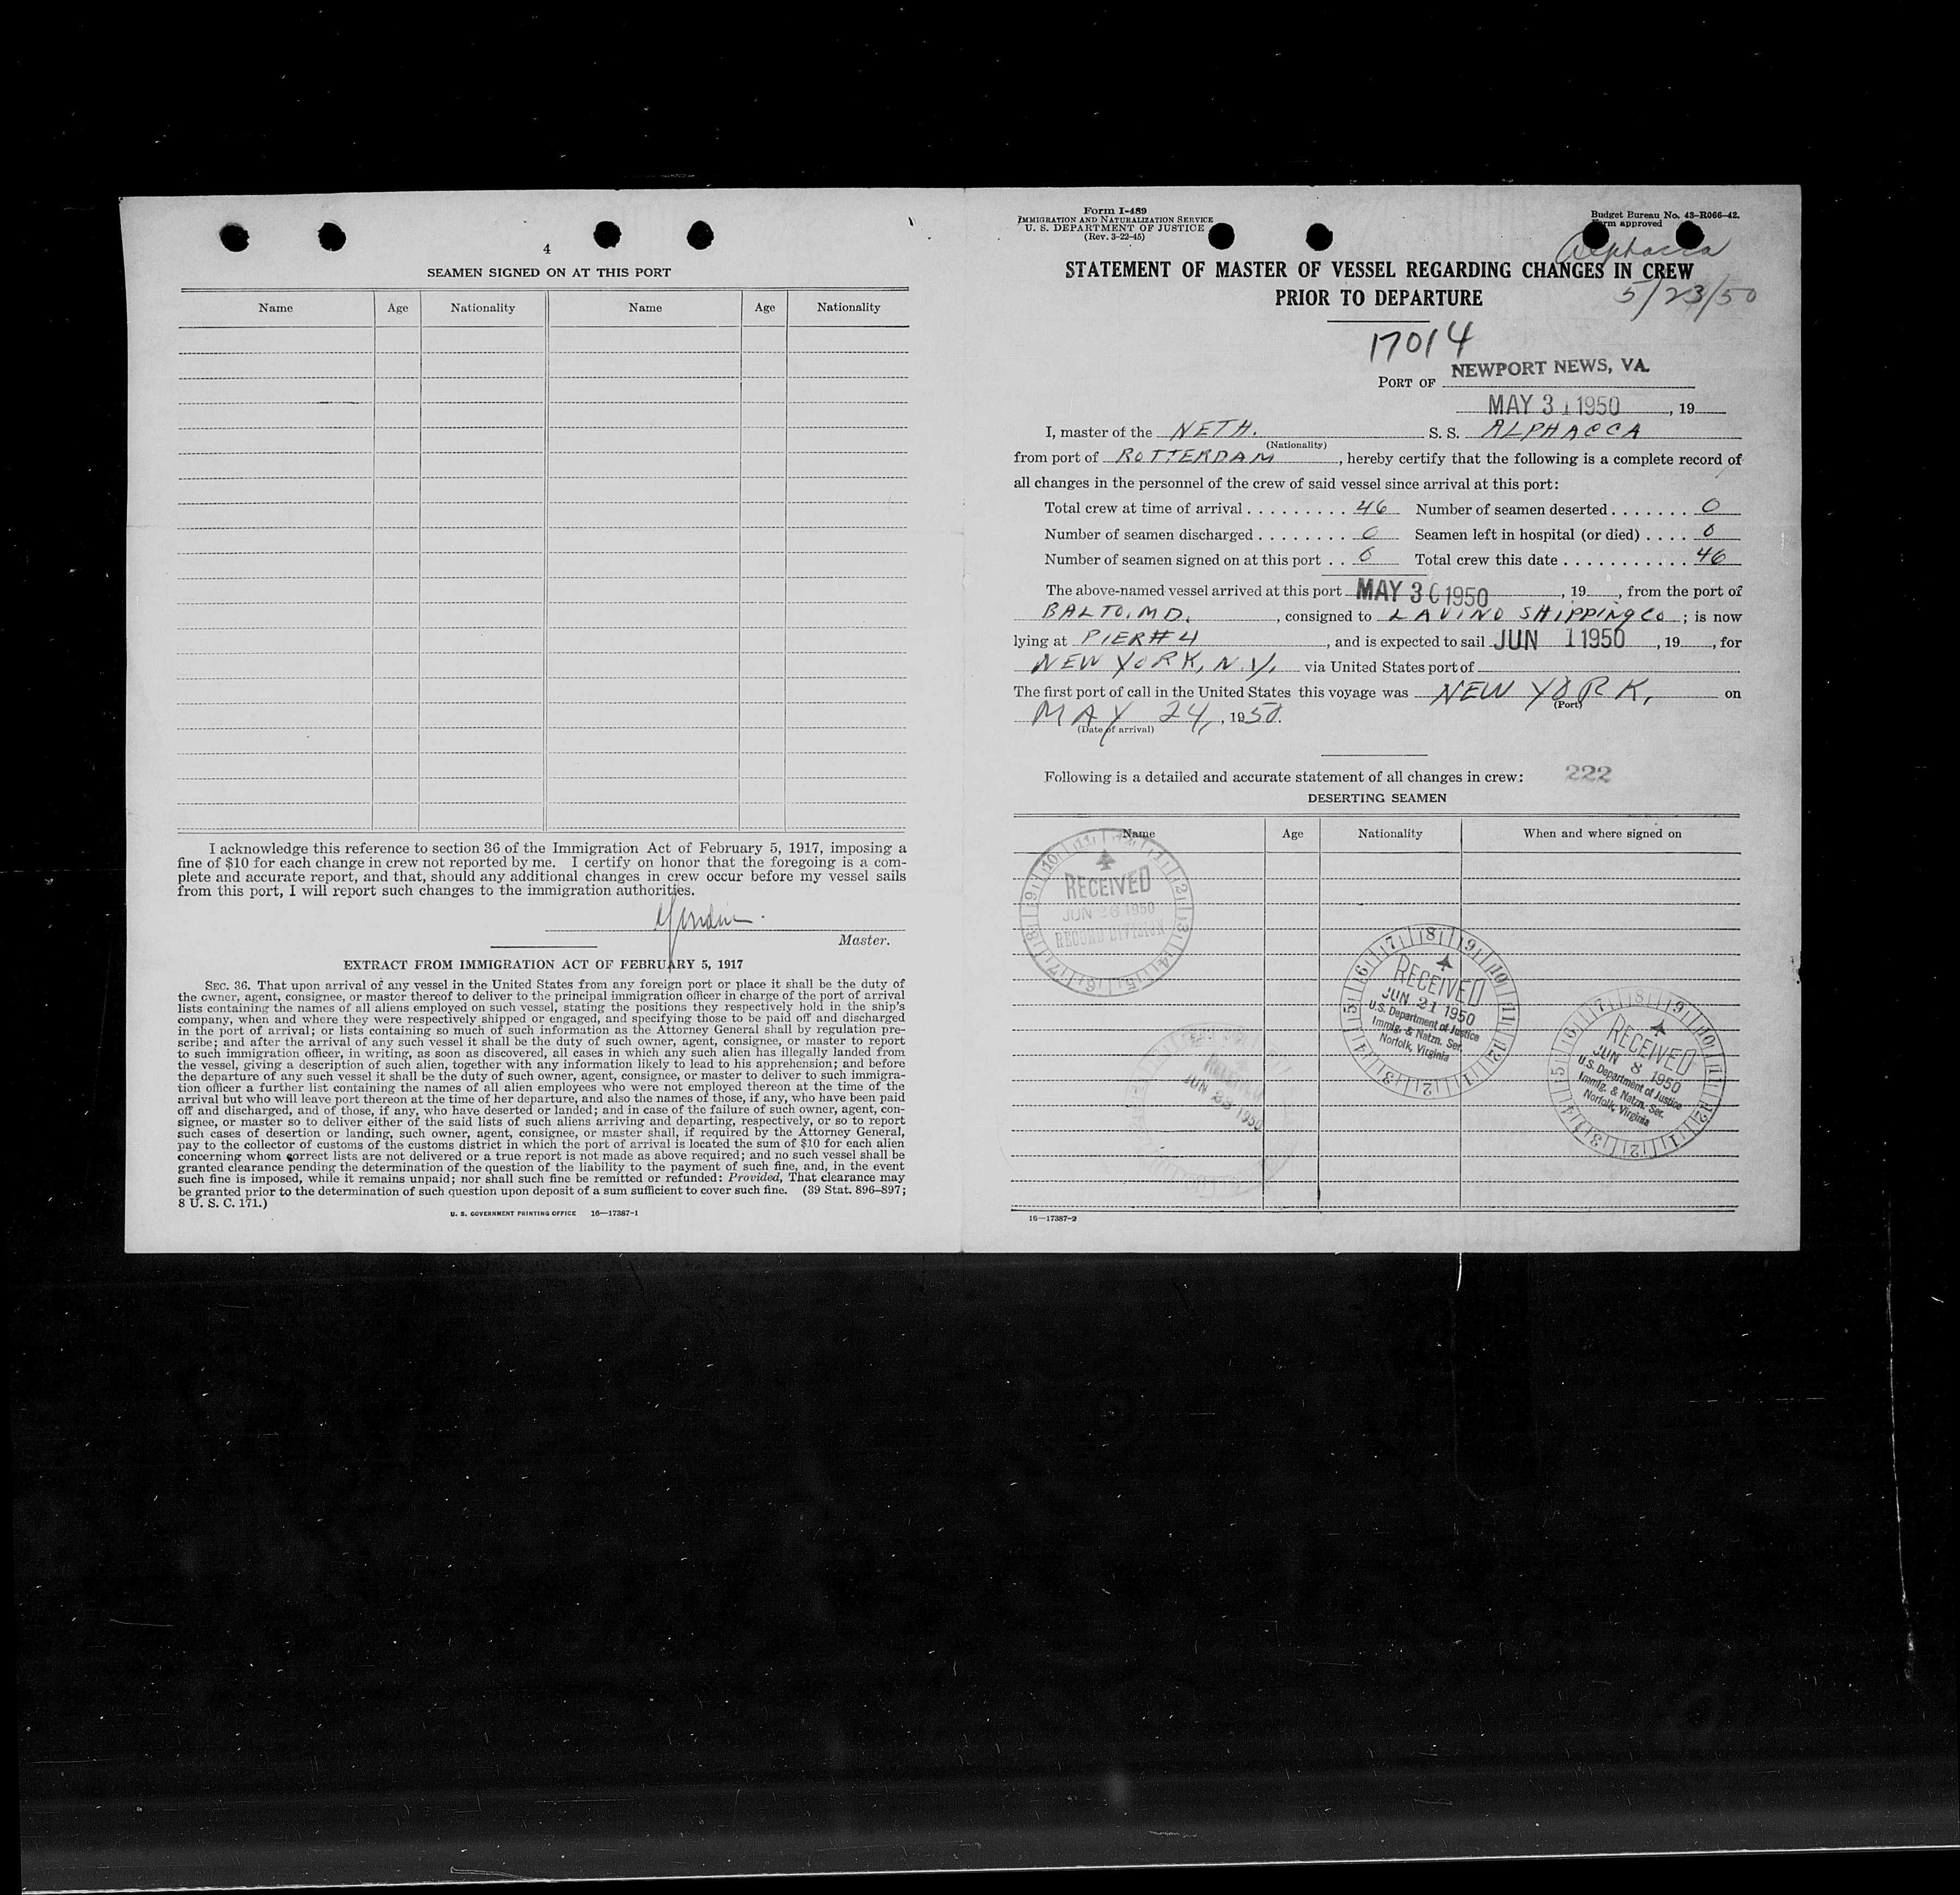 4
SEAMEN SIGNED ON AT THIS PORT
Name Age Nationality Name Age Nationality
I acknowledge this reference to section 36 of the Immigration Act of February 5, 1917, imposing a
fine of $10 for each change in crew not reported by me. I certify on honor that the foregoing is a com-
plete and accurate report, and that, should any additional changes in crew occur before my vessel sails
from this port, I will report such changes to the immigration authorities.
Master.
EXTRACT FROM IMMIGRATION ACT OF FEBRUARY 5, 1917
SEC. 36. That upon arrival of any vessel in the United States from any foreign port or place it shall be the duty of
the owner, agent, consignee, or master thereof to deliver to the principal immigration officer in charge of the port of arrival
lists containing the names of all aliens employed on such vessel, stating the positions they respectively hold in the ship's
company, when and where they were respectively shipped or engaged, and specifying those to be paid off and discharged
in the port of arrival; or lists containing so much of such information as the Attorney General shall by regulation pre-
scribe; and after the arrival of any such vessel it shall be the duty of such owner, agent, consignee, or master to report
to such immigration officer, in writing, as soon as discovered, all cases in which any such alien has illegally landed from
the vessel, giving a description of such alien, together with any information likely to lead to his apprehension; and before
the departure of any such vessel it shall be the duty of such owner, agent, consignee, or master to deliver to such immigra-
tion officer a further list containing the names of all alien employees who were not employed thereon at the time of the
arrival but who will leave port thereon at the time of her departure, and also the names of those, if any, who have been paid
off and discharged, and of those, if any, who have deserted or landed; and in case of the failure of such owner, agent, con-
signee, or master so to deliver either of the said lists of such aliens arriving and departing, respectively, or so to report
such cases of desertion or landing, such owner, agent, consignee, or master shall, if required by the Attorney General,
pay to the collector of customs of the customs district in which the port of arrival is located the sum of $10 for each alien
concerning whom correct lists are not delivered or a true report is not made as above required; and no such vessel shall be
granted clearance pending the determination of the question of the liability to the payment of such fine, and, in the event
such fine is imposed, while it remains unpaid; nor shall such fine be remitted or refunded: Provided, That clearance may
be granted prior to the determination of such question upon deposit of a sum sufficient to cover such fine. (39 Stat. 896–897;
8 U. S. C. 171.)
U. S. GOVERNMENT PRINTING OFFICE 16—17387-1
Form I-489
IMMIGRATION AND NATURALIZATION SERVICE
U. S. DEPARTMENT OF JUSTICE
(Rev. 3-22-45)
Budget Bureau No. 43-R066-42.
Form approved
Alphacca
STATEMENT OF MASTER OF VESSEL REGARDING CHANGES IN CREW
PRIOR TO DEPARTURE
5/23/50
17014
PORT OF NEWPORT NEWS, VA.
MAY 31 1950, 19
I, master of the NETH. S. S. ALPHACCA
(Nationality)
from port of ROTTERDAM, hereby certify that the following is a complete record of
all changes in the personnel of the crew of said vessel since arrival at this port:
Total crew at time of arrival 46 Number of seamen deserted 0
Number of seamen discharged 0 Seamen left in hospital (or died) 0
Number of seamen signed on at this port 0 Total crew this date 46
The above-named vessel arrived at this port MAY 30 1950, 19, from the port of
BALTO. MD., consigned to LAVINO SHIPPING CO; is now
lying at PIER #4, and is expected to sail JUN 1 1950, 19, for
NEW YORK, N.Y. via United States port of
The first port of call in the United States this voyage was NEW YORK, on
(Port)
MAY 24, 1950.
(Date of arrival)
Following is a detailed and accurate statement of all changes in crew: 222
DESERTING SEAMEN
Name Age Nationality When and where signed on
RECEIVED
JUN 26 1950
RECORD DIVISION
RECEIVED
JUN 21 1950
U.S. Department of Justice
Immig. & Natzn. Ser.
Norfolk, Virginia
RECEIVED
JUN 8 1950
U.S. Department of Justice
Immig. & Natzn. Ser.
Norfolk, Virginia
RECEIVED
16—17387-2